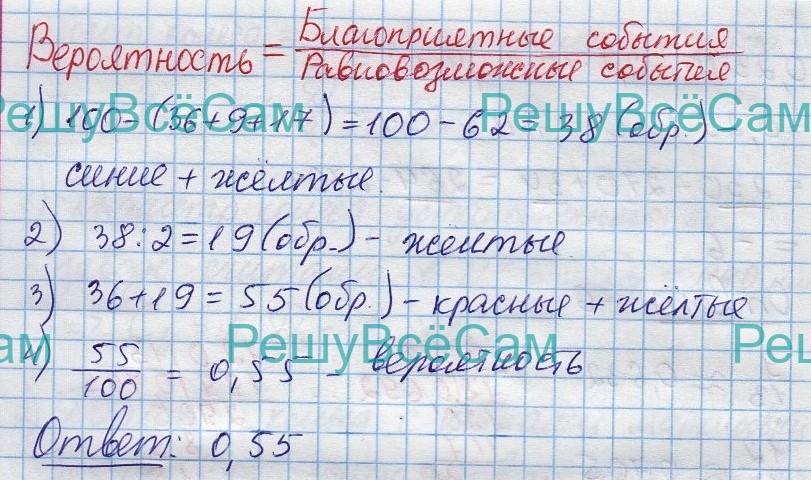 Вероятность = Благоприятные события / Равновозможные события
РешуВсёСам РешуВсёСам
1) 100 - (36 + 9 + 17) = 100 - 62 = 38 (обр.) -
синие + жёлтые.
2) 38 : 2 = 19 (обр.) - желтые
3) 36 + 19 = 55 (обр.) - красные + жёлтые
ам РешуВсёСам Реш
4) 55/100 = 0,55 - вероятность
Ответ: 0,55